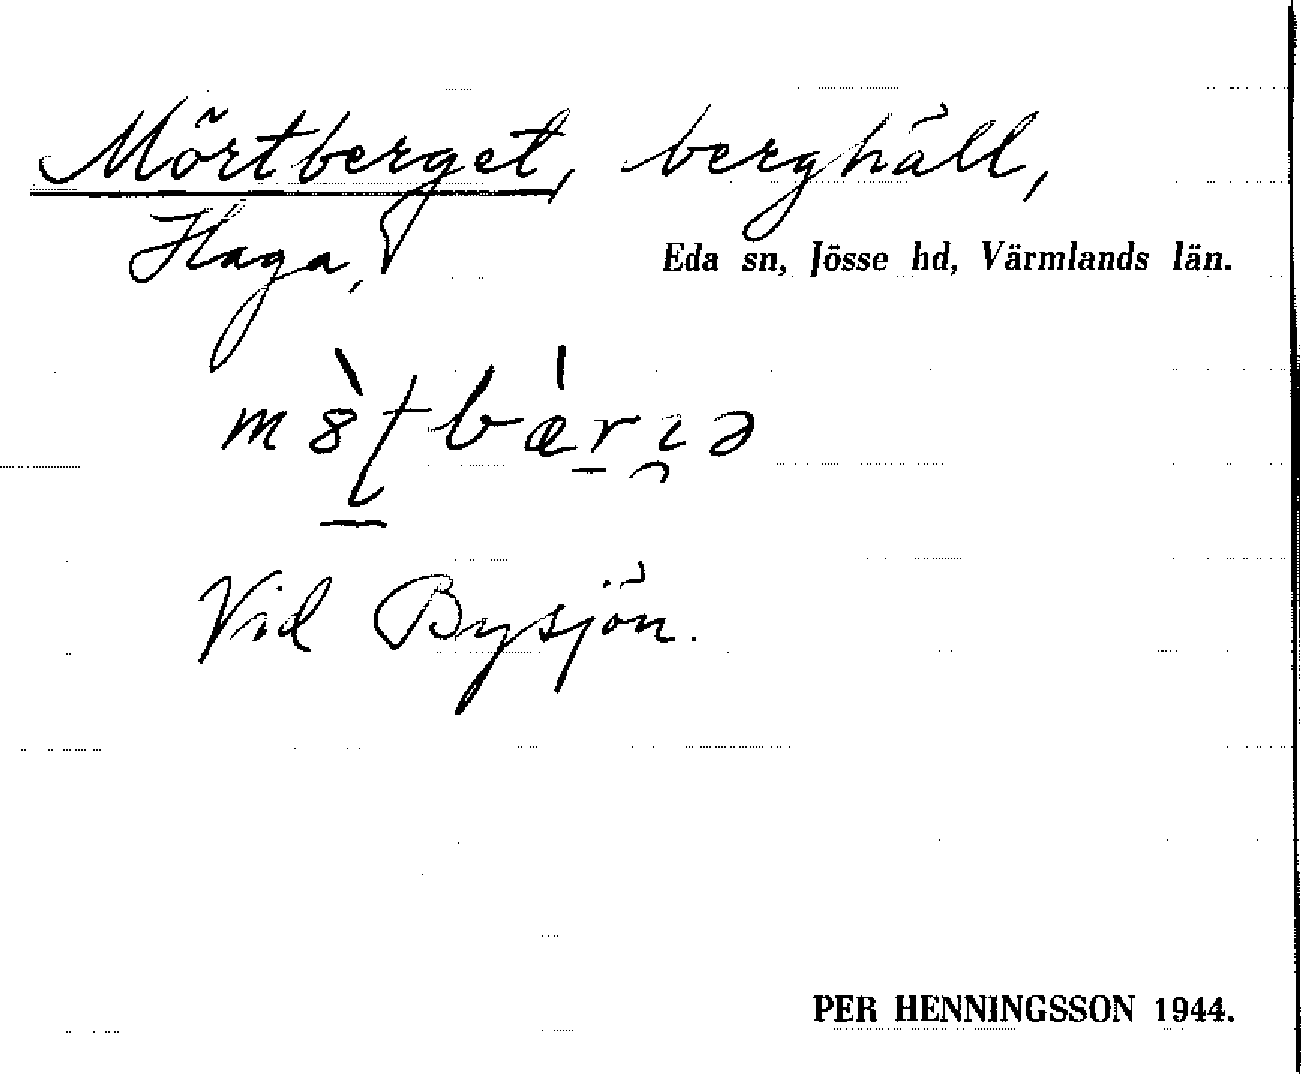 Mörtberget, berghäll,
Haga,
Eda sn, Jösse hd, Värmlands län.
Vid Bysjön.
PER HENNINGSSON 1944.